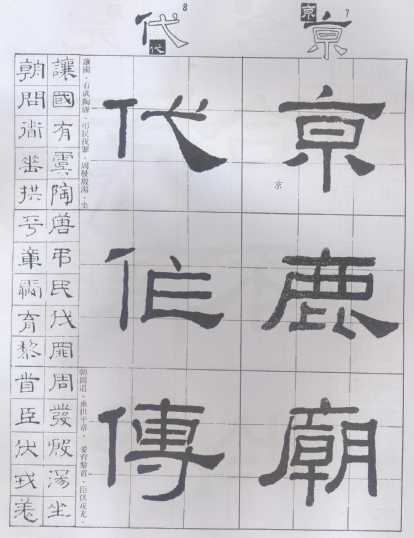 7
京
京
京
京
鹿
廟
8
代
代
代
作
傳
讓國、有虞陶唐、弔民伐罪、周發殷湯、坐
朝問道、垂拱平章、愛育黎首、臣伏戎羌、
讓國有虞陶唐弔民伐罪周發殷湯坐
朝問道垂拱平章愛育黎首臣伏戎羌